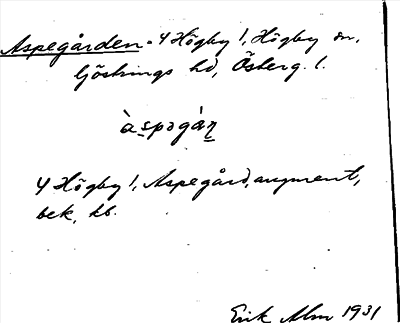 Aspegården - 4 Högby 1, Högby sn,
Göstrings hd, Österg. l.
àspəgàn̠
4 Högby 1, Aspegård, augment,
bek, hb.
Erik Alm 1931